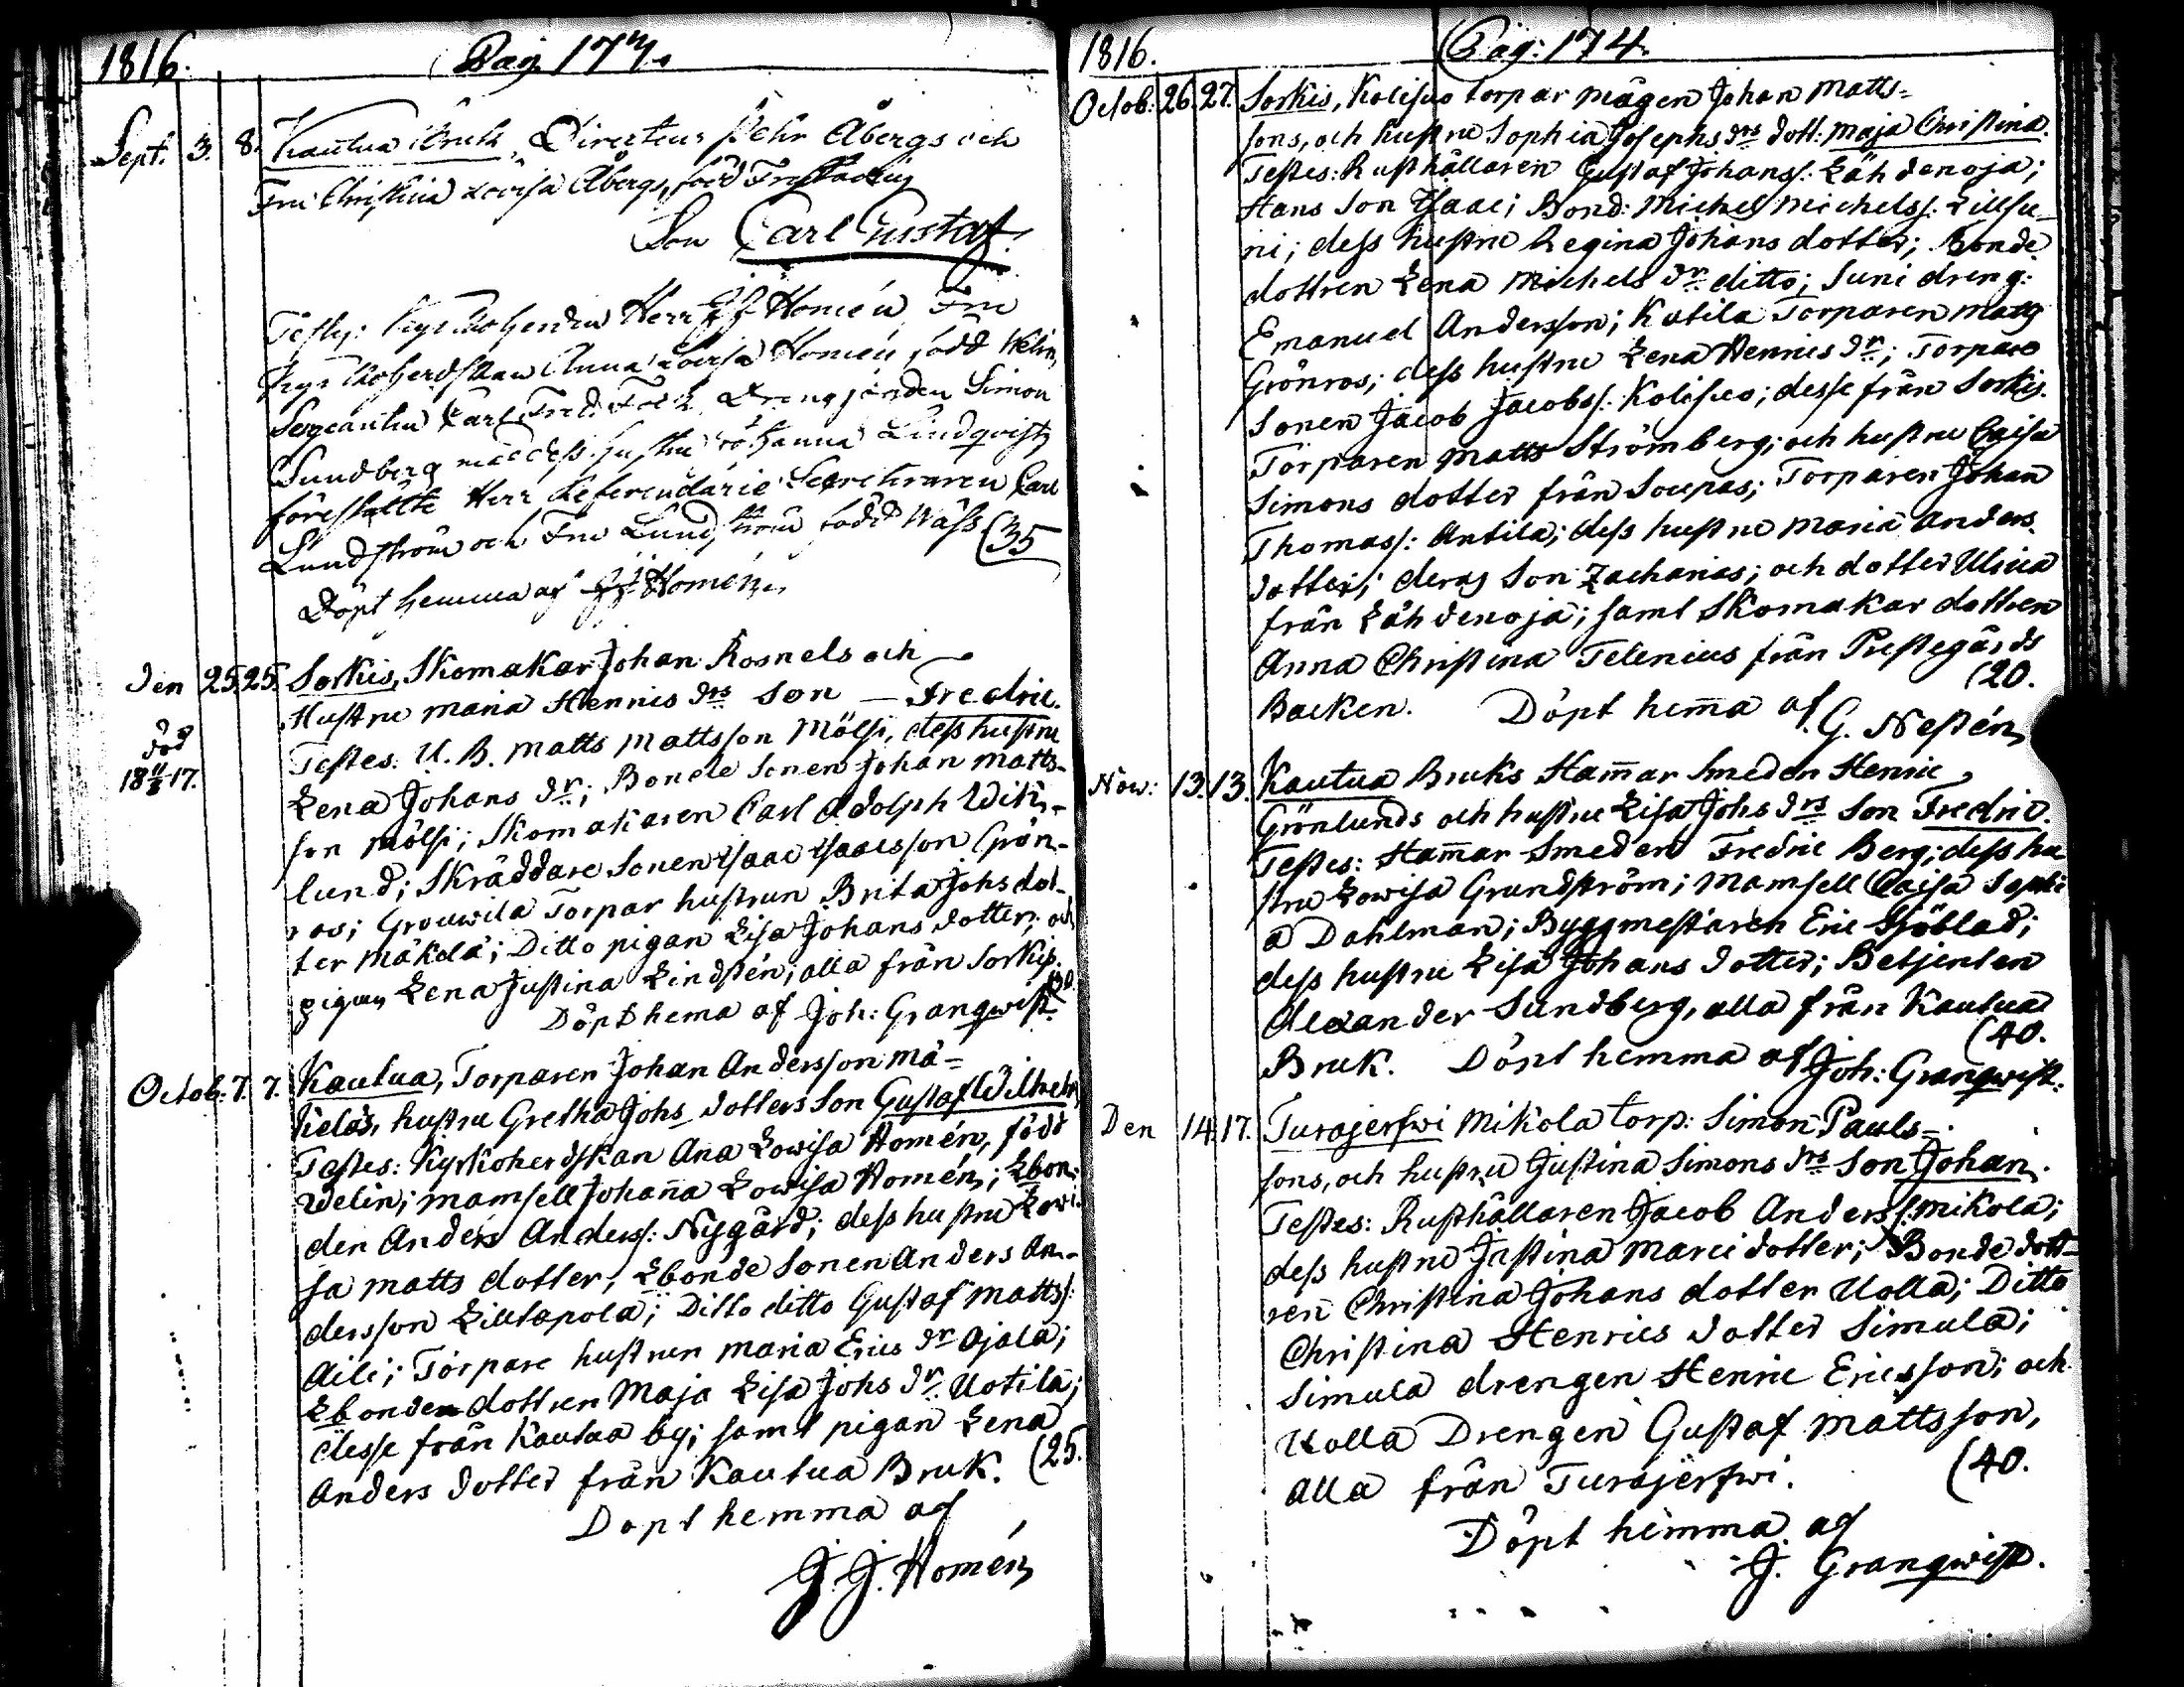 1816. Pag. 173.
Sept. 3. 8. Kautua Bruk, Directeur Pehr Åbergs och
Fru Christina Lovisa Åbergs, född
Son Carl Gustaf.
Testes: Kyrkoherden Herr J J Homén Fru
Kyrkoherdskan Anna Lovisa Homén född Welin,
Sergeanten Carl Fred. Drengjänden Simon
Sundberg med dess hustru Johanna Lindqvist,
förestälte Herr Referendarie Secreteraren Carl
Lundström och Fru Lundström född Wäss (35
Döpt hemma af J J Homén
den 25. 25. Sorkis, Skomakar Johan Rosnels och
Hustru Maria Henrics drs Son — Fredric.
död Testes. U. B. Matts Mattsson Mölsi, dess hustru
18 11/3 17. Lena Johans dr; Bonde Sonen Johan Matts-
son Mölsi; Skomakaren Carl Adolph Wik-
lund; Skräddare Sonen Isaac Isaacsson Grön-
ros; Grouwila Torpar hustrun Brita Johs dot-
ter Mäkelä; Ditto pigan Lisa Johans dotter; och
pigan Lena Justina Lindstén; alla från Sorkis.
Döpt hema af Joh: Grangwist.
Octob: 7. 7. Kautua, Torparen Johan Andersson Mä-
keläs, hustru Gretha Johs dotters Son Gustaf Wilhelm
Testes: Kyrkoherdskan Ana Lowisa Homén, född
Welin; Mamsell Johana Lowisa Homén; Lbon-
den Anders Anderss: Nygård; dess hustru Lowi-
sa Matts dotter; Lbonde Sonen Anders An-
dersson Lillapola; Ditto ditto Gustaf Mattss:
Aili; Torpare hustrun Maria Erics dr Ojala;
Lbonden dottren Maja Lisa Johs dr Uotila;
desse från Kautua by; samt pigan Lena
Anders dotter från Kautua Bruk. (25.
Döpt hemma af
J. J. Homén
1816. Pag: 174.
Octob: 26. 27. Sorkis, Kolisuo torpar mågen Johan Matts-
sons, och hustru Sophia Josephs drs dott: Maja Christina.
Testes: Rusthållaren Gustaf Johanss: Lähdenoja;
Hans Son Isaac; Bond: Michel Michelss: Lillsu-
ni; dess hustru Regina Johans dotter; Bonde
dottren Lena Michels dr ditto; Suni dreng:
Emanuel Andersson; Katila Torparen Matts
Grönros; dess hustru Lena Henrics dr; Torpare
Sonen Jacob Jacobss: Kolisuo; desse från Sorkis.
Torparen Matts Strömberg; och hustru Caisa
Simons dotter från Soupas; Torparen Johan
Thomass: Antila; dess hustru Maria Anders
dotter; deras Son Zacharias; och dotter Ulrica
från Lähdenoja; samt Skomakar dottren
Anna Christina Telenius från Prestegårds
Backen. Döpt hema af G. Nestén (20.
Now: 13. 13. Kautua Bruks Hamar Smeden Henric
Grönlunds och hustru Lisa Johs drs Son Fredric.
Testes: Hamar Smeden Fredric Berg; dess hu-
stru Lowisa Grundström; Mamsell Caisa Sophi-
a Dahlman; Byggmestaren Eric Sjöblad;
dess hustru Lisa Johans dotter; Betjenten
Alexander Sundberg, alla från Kautua
Bruk. Döpt hemma af Joh: Grangwist. (40.
Den 14. 17. Turajerfwi Mikola torp: Simon Pauls-
sons, och hustru Justina Simons drs Son Johan.
Testes: Rusthållaren Jacob Anderss: Mikola;
dess hustru Justina Marci dotter; Bonde dott-
ren Christina Johans dotter Uolla; Ditto
Christina Henrics dotter Simula;
Simula drengen Henric Ericsson; och
Uolla Drengen Gustaf Mattsson,
alla från Turajerfwi. (40.
Döpt hemma af
J. Grangwist.